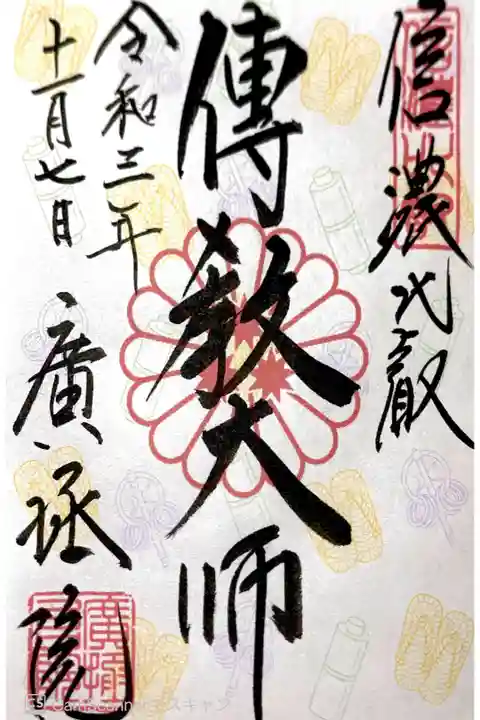 信濃比叡
傳教大師
令和三年
十一月七日
廣拯院
CS CamScannerでスキャン